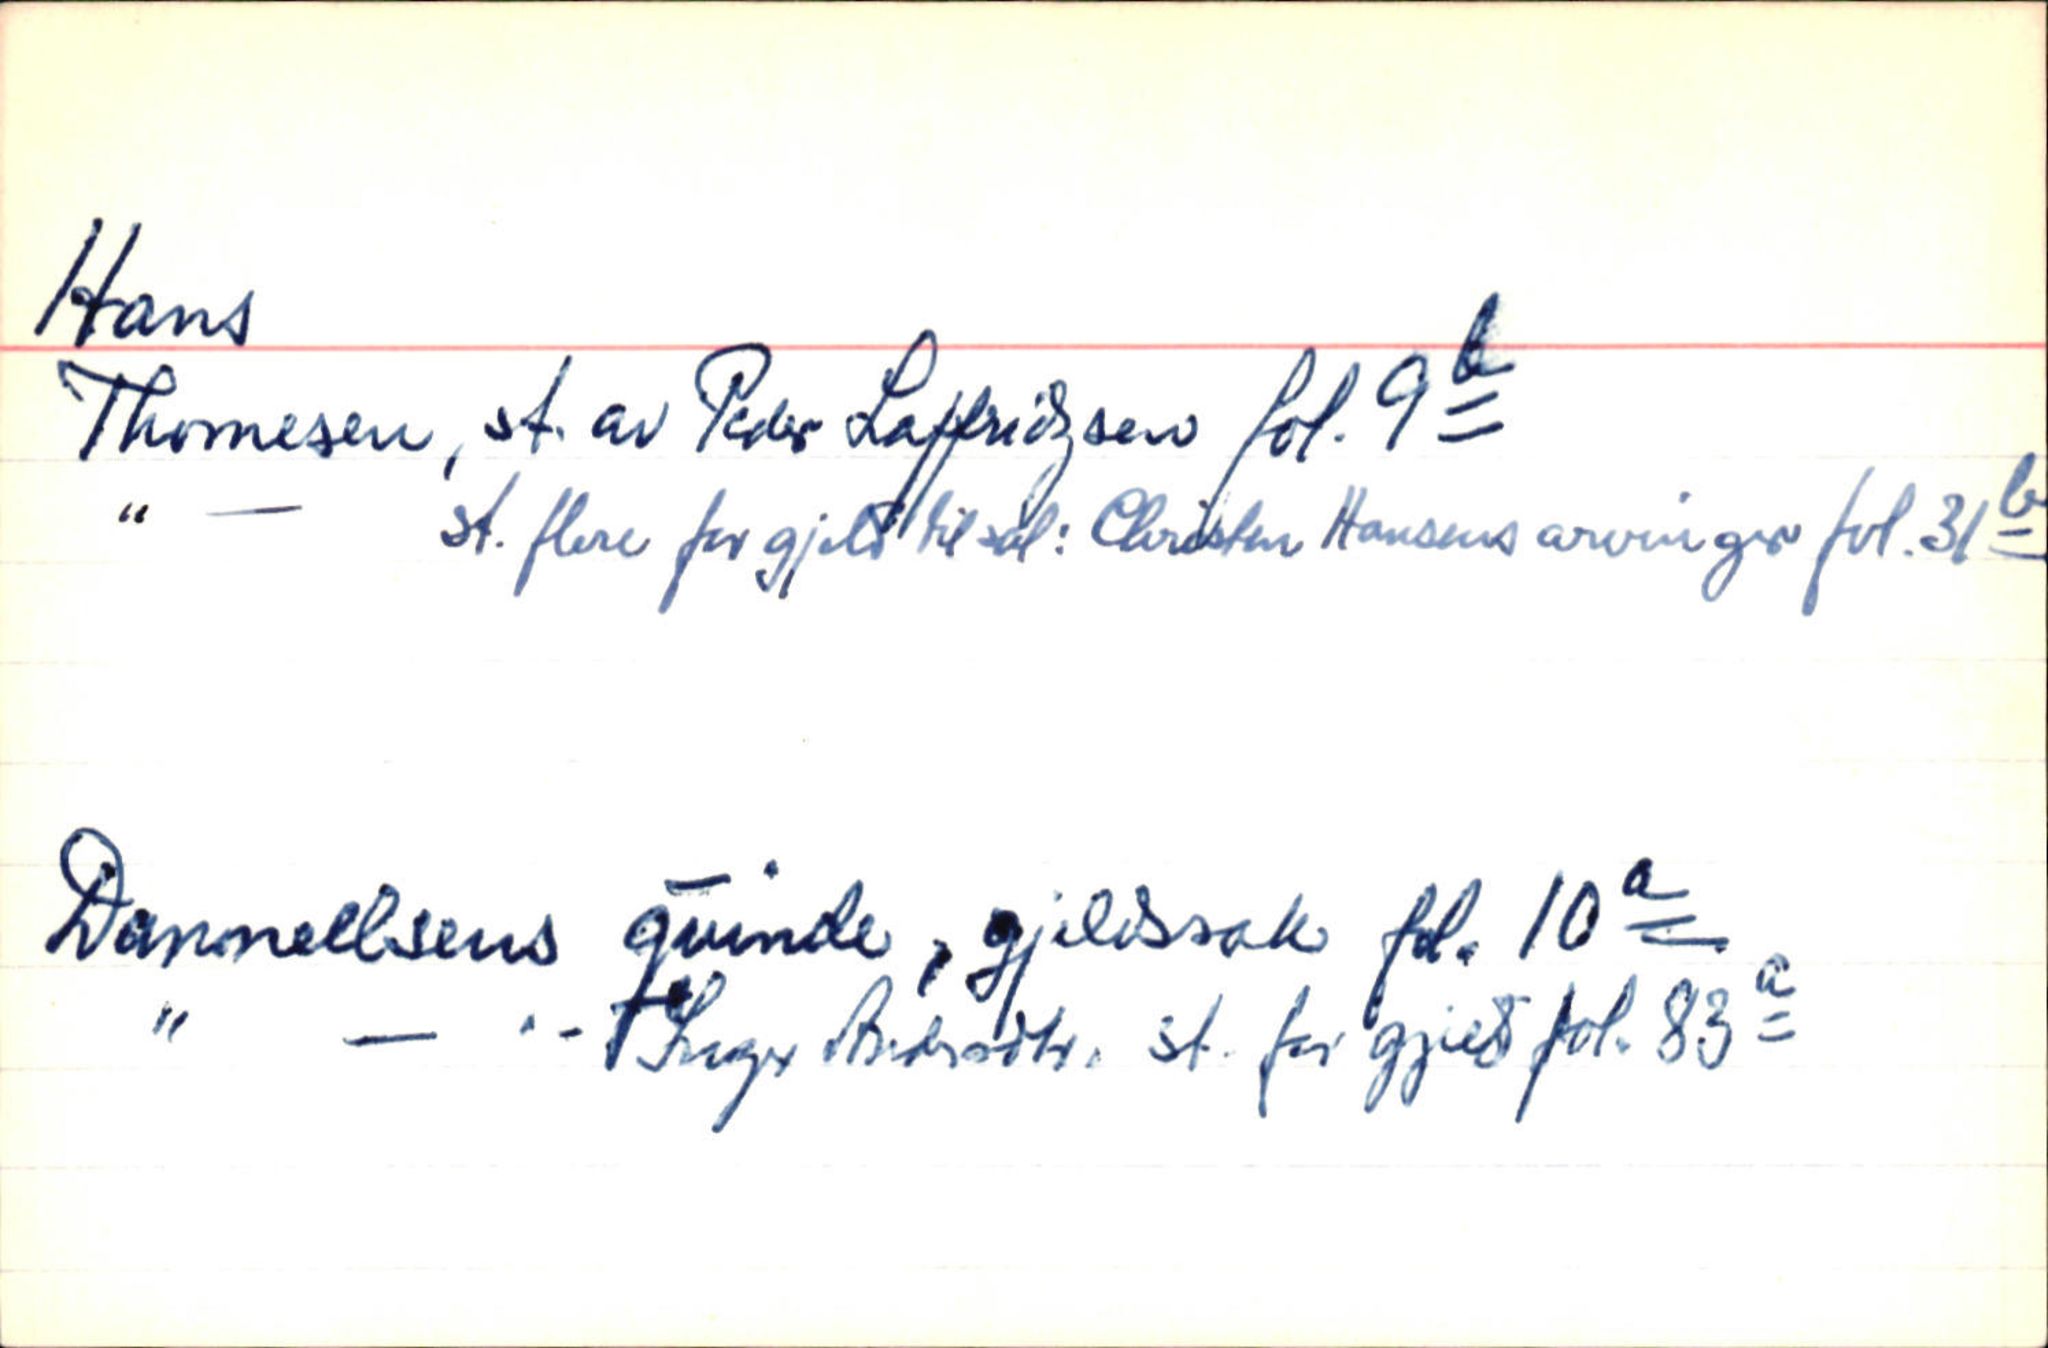 Hans
Thomesen, st. av Peder Laffridzsen fol. 9 b
" — st. flere for gjeld til sal: Christen Hansens arvinger fol. 31 b
Dannellsens qvinde, gjeldssak fol. 10 a
" — " - Inger st. for gjeld fol. 83 a